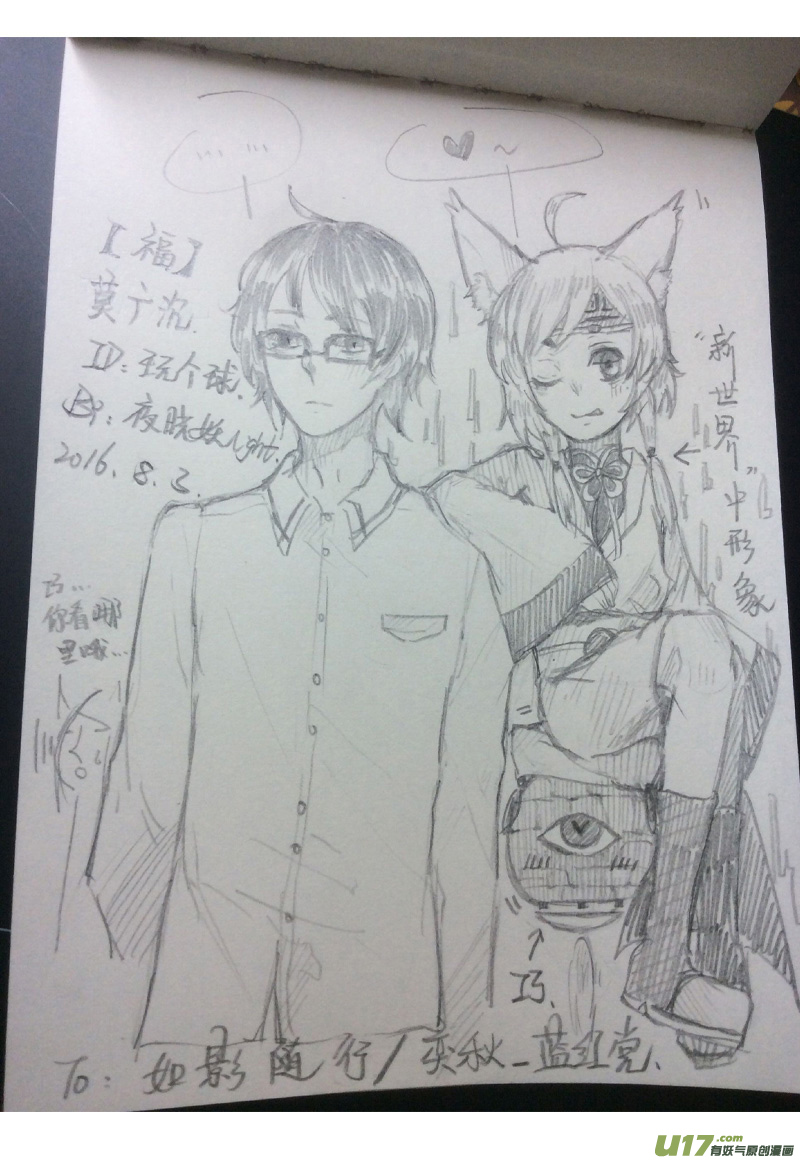 …… ……
♥ ~
【福】
莫宁沉.
ID:玩个球.
By:夜晓妖Light.
2016.8.3.
"新世界"中形象
巧…
你看哪
里哦…
巧.
To:如影随行/奕秋_蓝红党.
U17.com
有妖气原创漫画